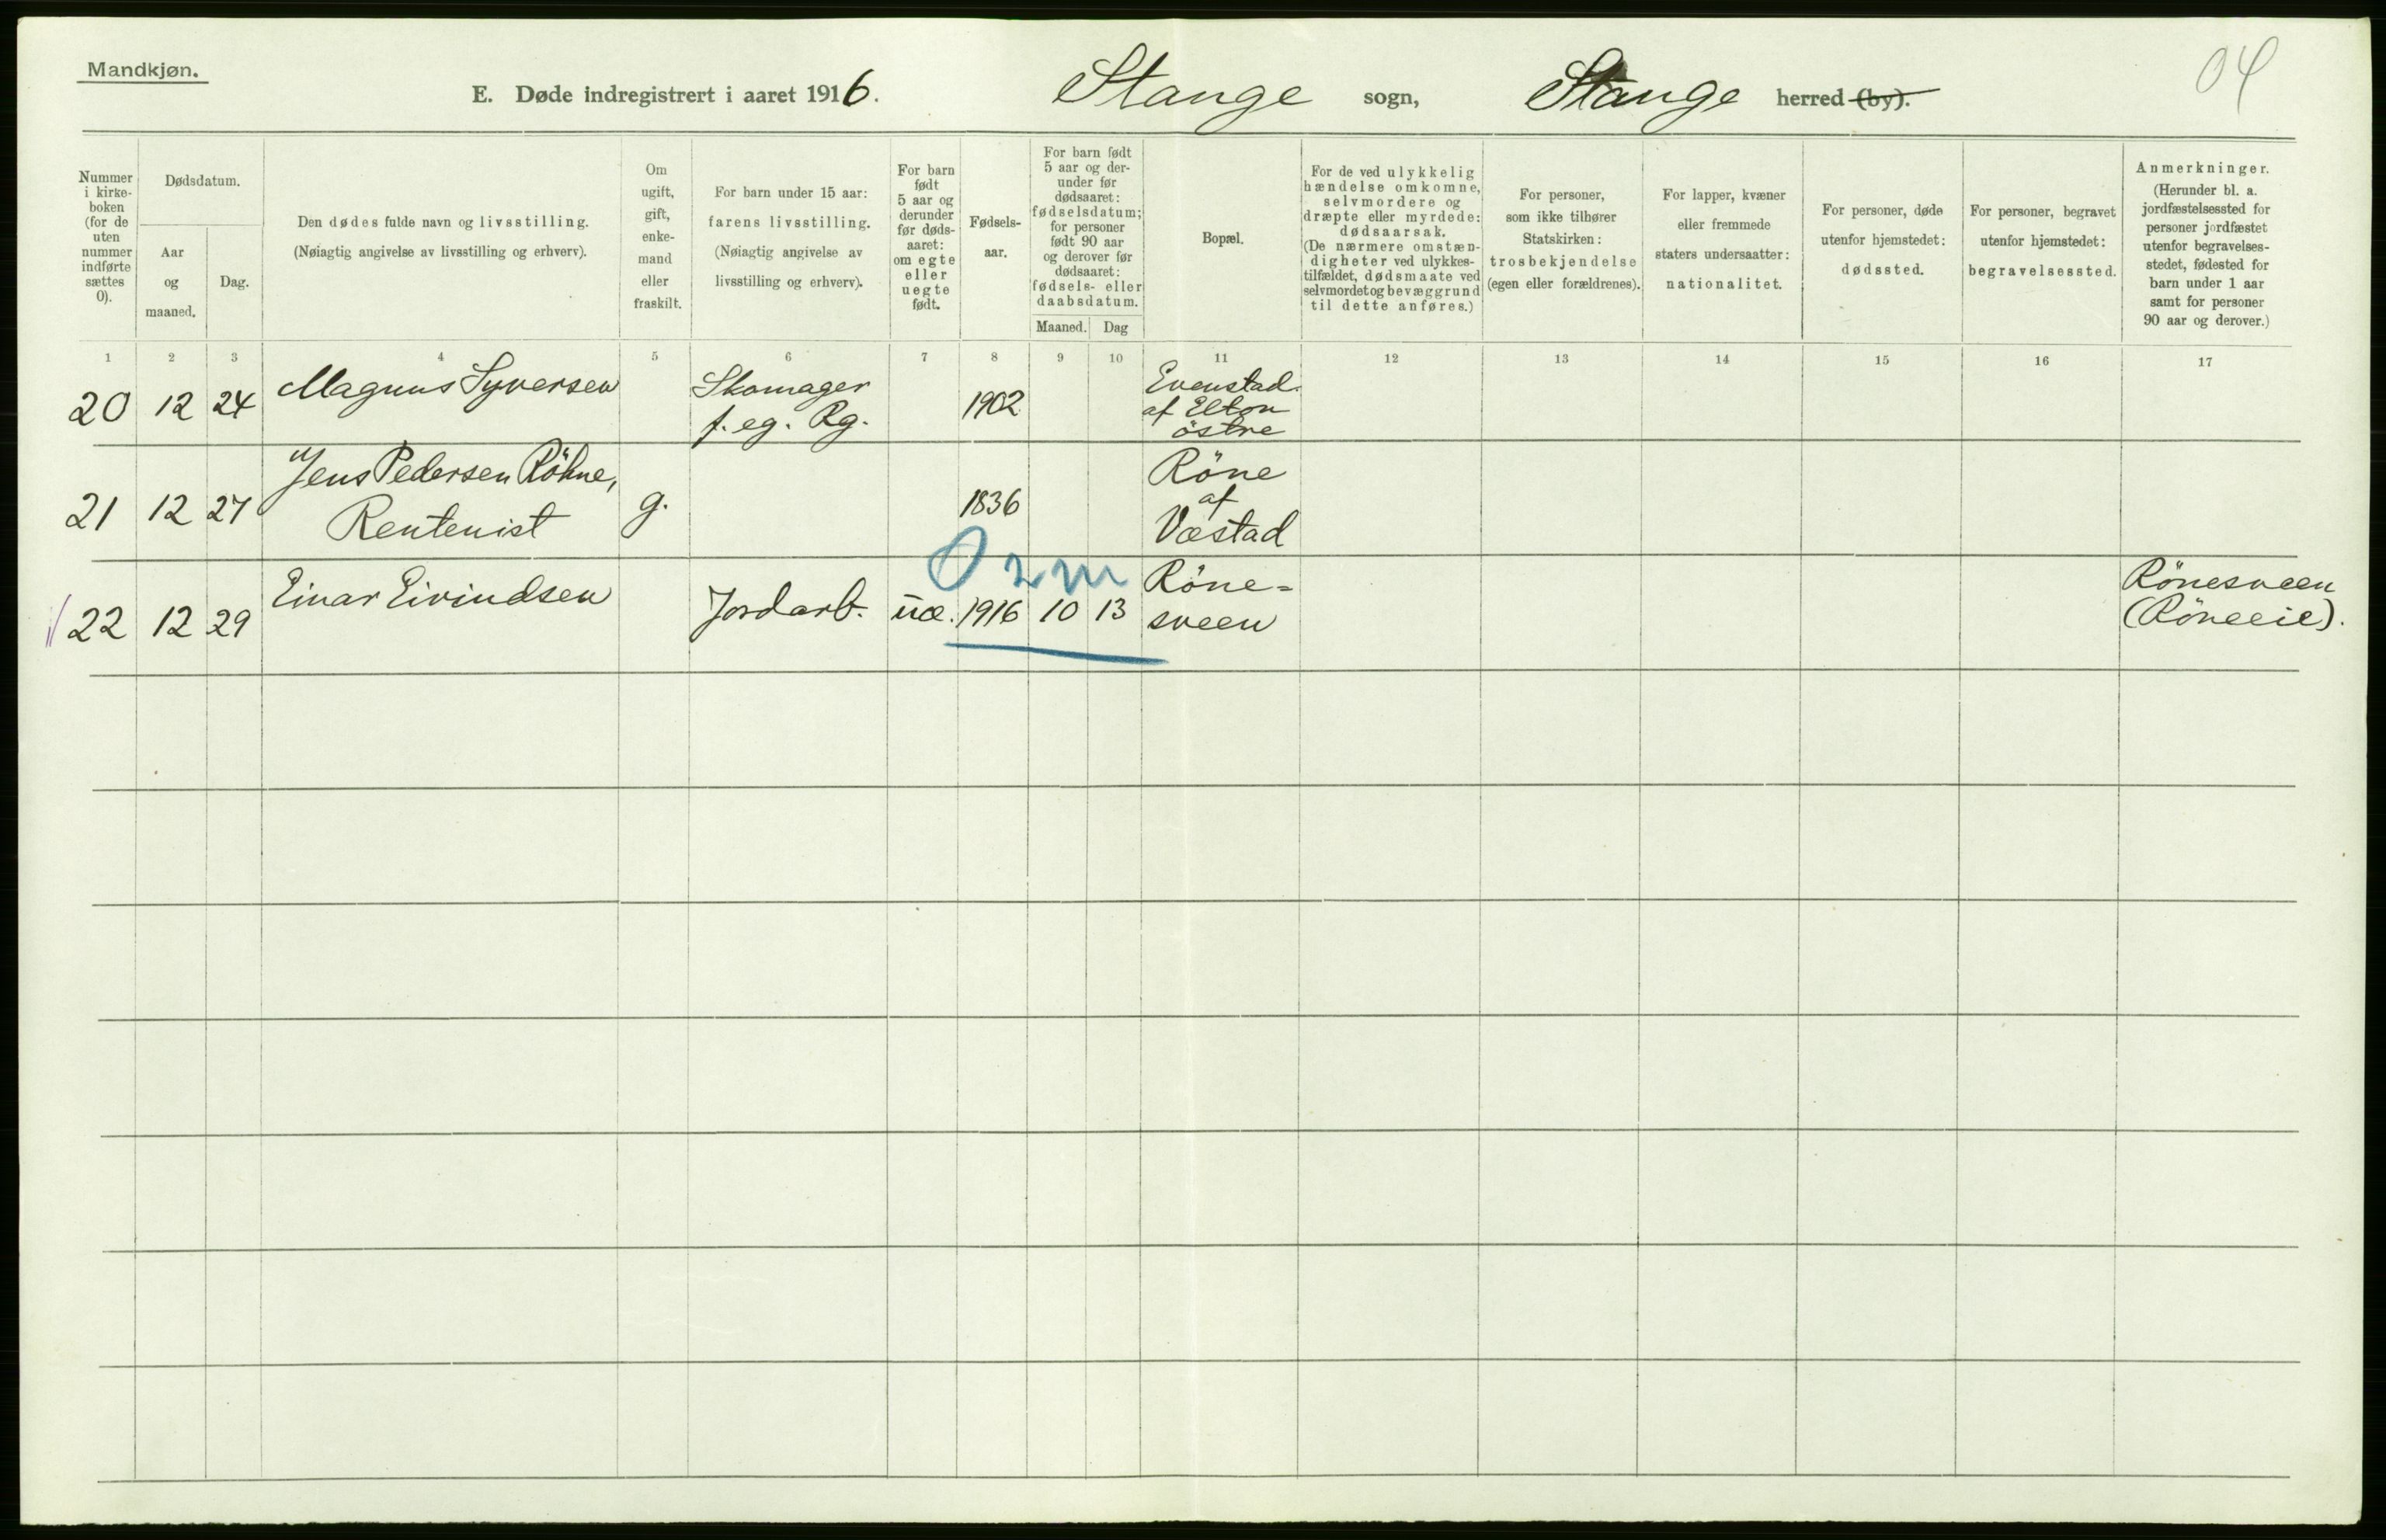 Mandkjøn.
E. Døde indregistrert i aaret 1916. Stange sogn, Stange herred (by).
04
Nummer i kirke-boken (for de uten nummer indførte sættes 0).
Dødsdatum.
Aar og maaned.
Dag.
Den dødes fulde navn og livsstilling.
(Nøiagtig angivelse av livsstilling og erhverv).
Om ugift, gift, enke-mand eller fraskilt.
For barn under 15 aar:
farens livsstilling.
(Nøiagtig angivelse av
livsstilling og erhverv).
For barn født 5 aar og derunder før døds-aaret: om egte eller uegte født.
Fødsels-aar.
For barn født 5 aar og der-under før dødsaaret: fødselsdatum; for personer født 90 aar og derover før dødsaaret: fødsels- eller daabsdatum.
Maaned. Dag
Bopæl.
For de ved ulykkelig hændelse omkomne, selvmordere og dræpte eller myrdede: dødsaarsak. (De nærmere omstæn-digheter ved ulykkes-tilfældet, dødsmaate ved selvmordet og bevæggrund til dette anføres.)
For personer, som ikke tilhører Statskirken: trosbekjendelse (egen eller forældrenes).
For lapper, kvæner eller fremmede staters undersaatter: nationalitet.
For personer, døde utenfor hjemstedet: dødssted.
For personer, begravet utenfor hjemstedet: begravelsessted.
Anmerkninger.
(Herunder bl. a. jordfæstelsessted for personer jordfæstet utenfor begravelses-stedet, fødested for barn under 1 aar samt for personer 90 aar og derover.)
1 2 3 4 5 6 7 8 9 10 11 12 13 14 15 16 17
20 12 24 Magnus Syversen Skomager f. eg. Rg. 1902 Evenstad af Elton östre
21 12 27 Jens Pedersen Röhne, Rentenist g. 1836 Röne af Væstad
0 2 m
22 12 29 Einar Eivindsen Jordarb. uæ. 1916 10 13 Röne=sveen Rönesveen (Röneeie).